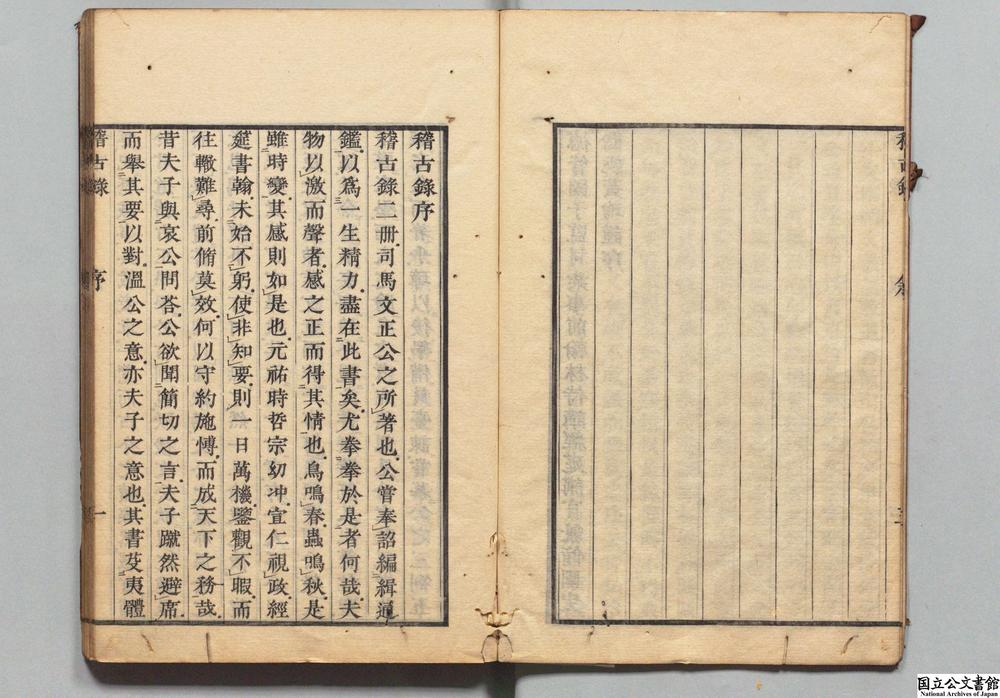 稽古錄
敘
稽古錄序
稽古錄二冊司馬文正公之所著也公嘗奉詔編緝通
鑑以爲一生精力盡在此書矣尤拳拳於是者何哉夫
物以激而聲者感之正而得其情也鳥鳴春蟲鳴秋是
雖時變其感則如是也元祐時哲宗幼冲宣仁視政經
筵書翰未始不躬使非知要則一日萬機鑒觀不暇而
往轍難尋前脩莫效何以守約施愽而成天下之務哉
昔夫子與哀公問荅公欲聞簡切之言夫子蹴然避席
而舉其要以對溫公之意亦夫子之意也其書芟夷體
稽古錄
序
一
国立公文書館
National Archives of Japan